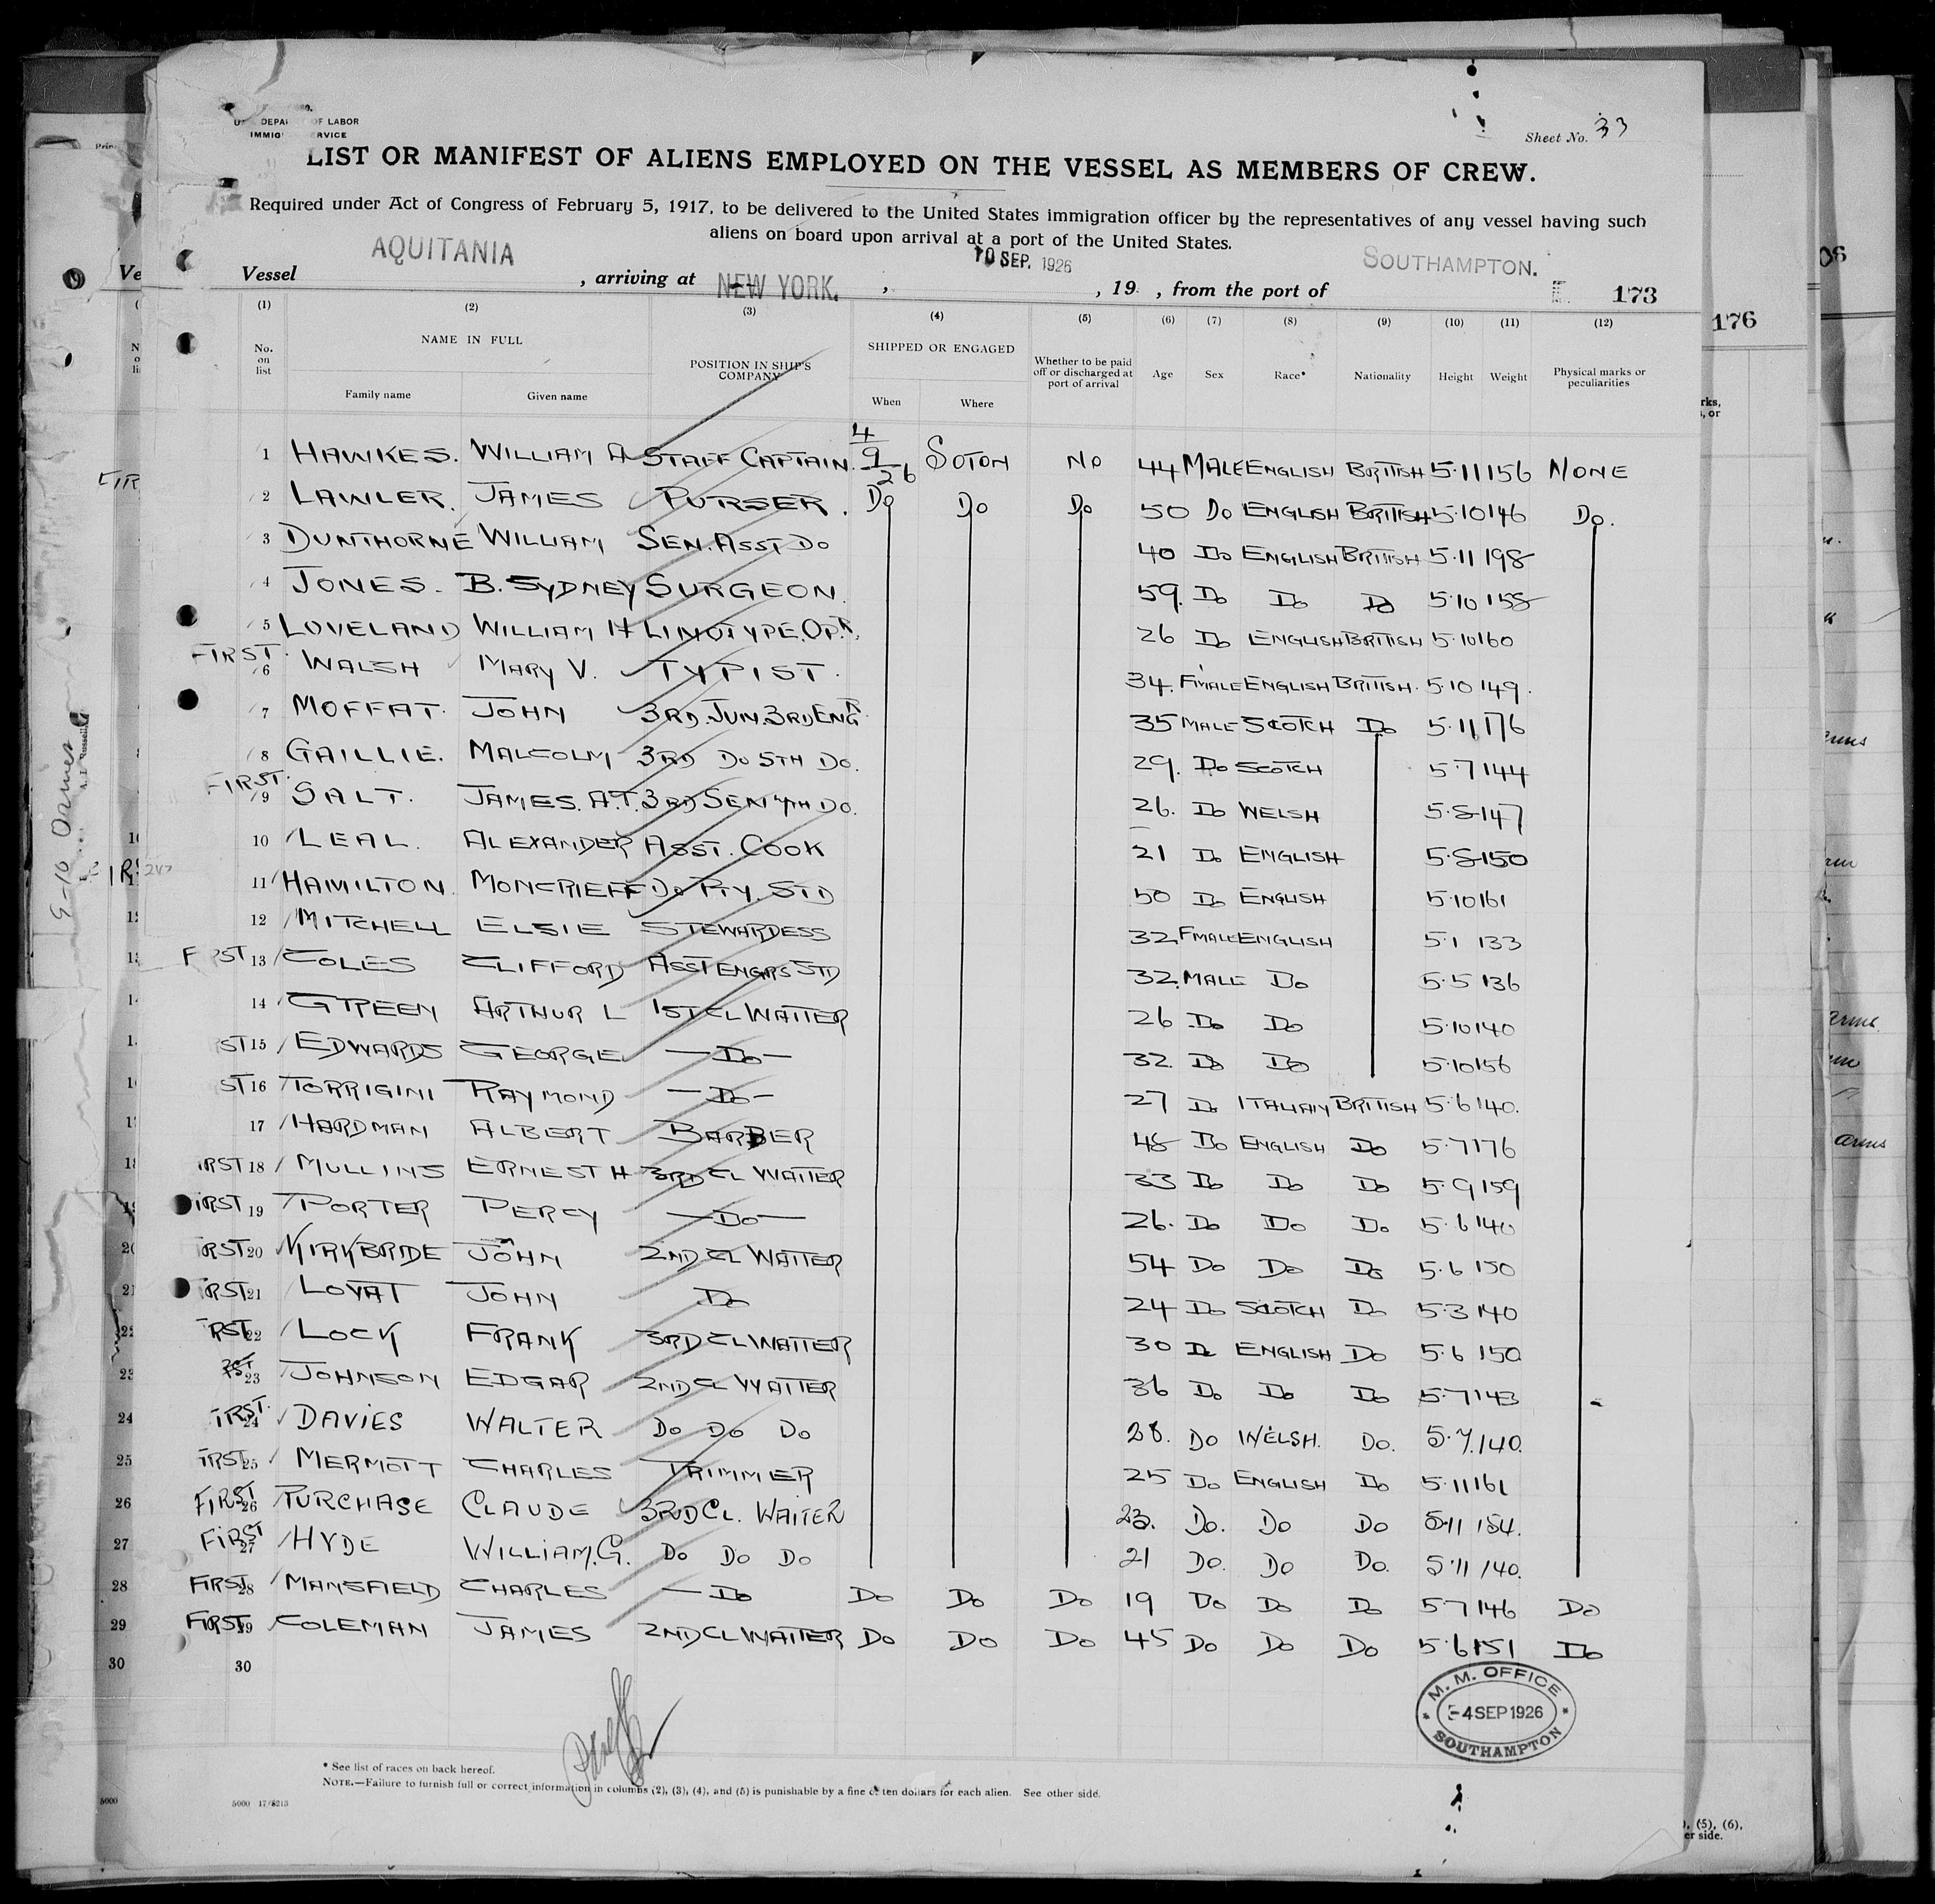 U. S. DEPARTMENT OF LABOR
IMMIGRATION SERVICE
Sheet No. 33
LIST OR MANIFEST OF ALIENS EMPLOYED ON THE VESSEL AS MEMBERS OF CREW.
Required under Act of Congress of February 5, 1917, to be delivered to the United States immigration officer by the representatives of any vessel having such
aliens on board upon arrival at a port of the United States.
Vessel AQUITANIA, arriving at NEW YORK., 10 SEP. 1926, 19 , from the port of SOUTHAMPTON.
173
176
(1) (2) (3) (4) (5) (6) (7) (8) (9) (10) (11) (12)
No. on list NAME IN FULL Family name Given name POSITION IN SHIP'S COMPANY SHIPPED OR ENGAGED When Where Whether to be paid off or discharged at port of arrival Age Sex Race* Nationality Height Weight Physical marks or peculiarities
1 HAWKES. WILLIAM A STAFF CAPTAIN. 4/9/26 SOTON NO 44 MALE ENGLISH BRITISH 5.11 156 NONE
2 LAWLER. JAMES PURSER. DO DO DO 50 DO ENGLISH BRITISH 5.10 146 DO.
3 DUNTHORNE WILLIAM SEN. ASST DO 40 DO ENGLISH BRITISH 5.11 198
4 JONES. B. SYDNEY SURGEON. 59. DO DO DO 5.10 158
5 LOVELAND WILLIAM H LINOTYPE. OPR. 26 DO ENGLISH BRITISH 5.10 160
FIRST 6 WALSH MARY V. TYPIST. 34. FMALE ENGLISH BRITISH. 5.10 149.
7 MOFFAT. JOHN 3RD. JUN. 3RD ENGR 35 MALE SCOTCH DO 5.11 176
8 GAILLIE. MALCOLM 3RD DO 5TH DO. 29. DO SCOTCH 5.7 144
FIRST 9 SALT. JAMES. A.T. 3RD SEN 4TH DO. 26. DO WELSH 5.8 147
10 LEAL. ALEXANDER ASST. COOK 21 DO ENGLISH 5.8 150
11 HAMILTON. MONCRIEFF DO PTY. STD 50 DO ENGLISH 5.10 161
12 MITCHELL ELSIE STEWARDESS 32 FMALE ENGLISH 5.1 133
F RST 13 COLES CLIFFORD ASST ENGRS STD 32. MALE DO 5.5 136
14 GREEN ARTHUR L 1ST CL WAITER 26 DO DO 5.10 140
ST 15 EDWARDS GEORGE — DO — 32. DO DO 5.10 156
ST 16 TORRIGINI RAYMOND — DO — 27 DO ITALIAN BRITISH 5.6 140.
17 HARDMAN ALBERT BARBER 48 DO ENGLISH DO 5.7 176
IRST 18 MULLINS ERNEST H 3RD CL WAITER 33 DO DO DO 5.9 159
IRST 19 PORTER PERCY — DO — 26. DO DO DO 5.6 140
IRST 20 KIRKBRIDE JOHN 2ND CL WAITER 54 DO DO DO 5.6 150
IRST 21 LOVAT JOHN DO 24 DO SCOTCH DO 5.3 140
IRST 22 LOCK FRANK 3RD CL WAITER 30 DO ENGLISH DO 5.6 150
23 JOHNSON EDGAR 2ND CL WAITER 36 DO DO DO 5.7 143
IRST. 24 DAVIES WALTER DO DO DO 28. DO WELSH. DO. 5.7. 140.
IRST 25 MERMOTT CHARLES TRIMMER 25 DO ENGLISH DO 5.11 161
FIRST 26 PURCHASE CLAUDE 3RD CL. WAITER 23. DO. DO DO 5.11 154.
FIRST 27 HYDE WILLIAM. G. DO DO DO 21 DO. DO DO. 5.11 140.
FIRST 28 MANSFIELD CHARLES — DO DO DO DO 19 DO DO DO 5.7 146 DO
FIRST 29 COLEMAN JAMES 2ND CL WAITER DO DO DO 45 DO DO DO 5.6 151 DO
30
M. M. OFFICE
-4 SEP 1926
SOUTHAMPTON
* See list of races on back hereof.
NOTE.—Failure to furnish full or correct information in columns (2), (3), (4), and (5) is punishable by a fine of ten dollars for each alien. See other side.
5000 17/8213